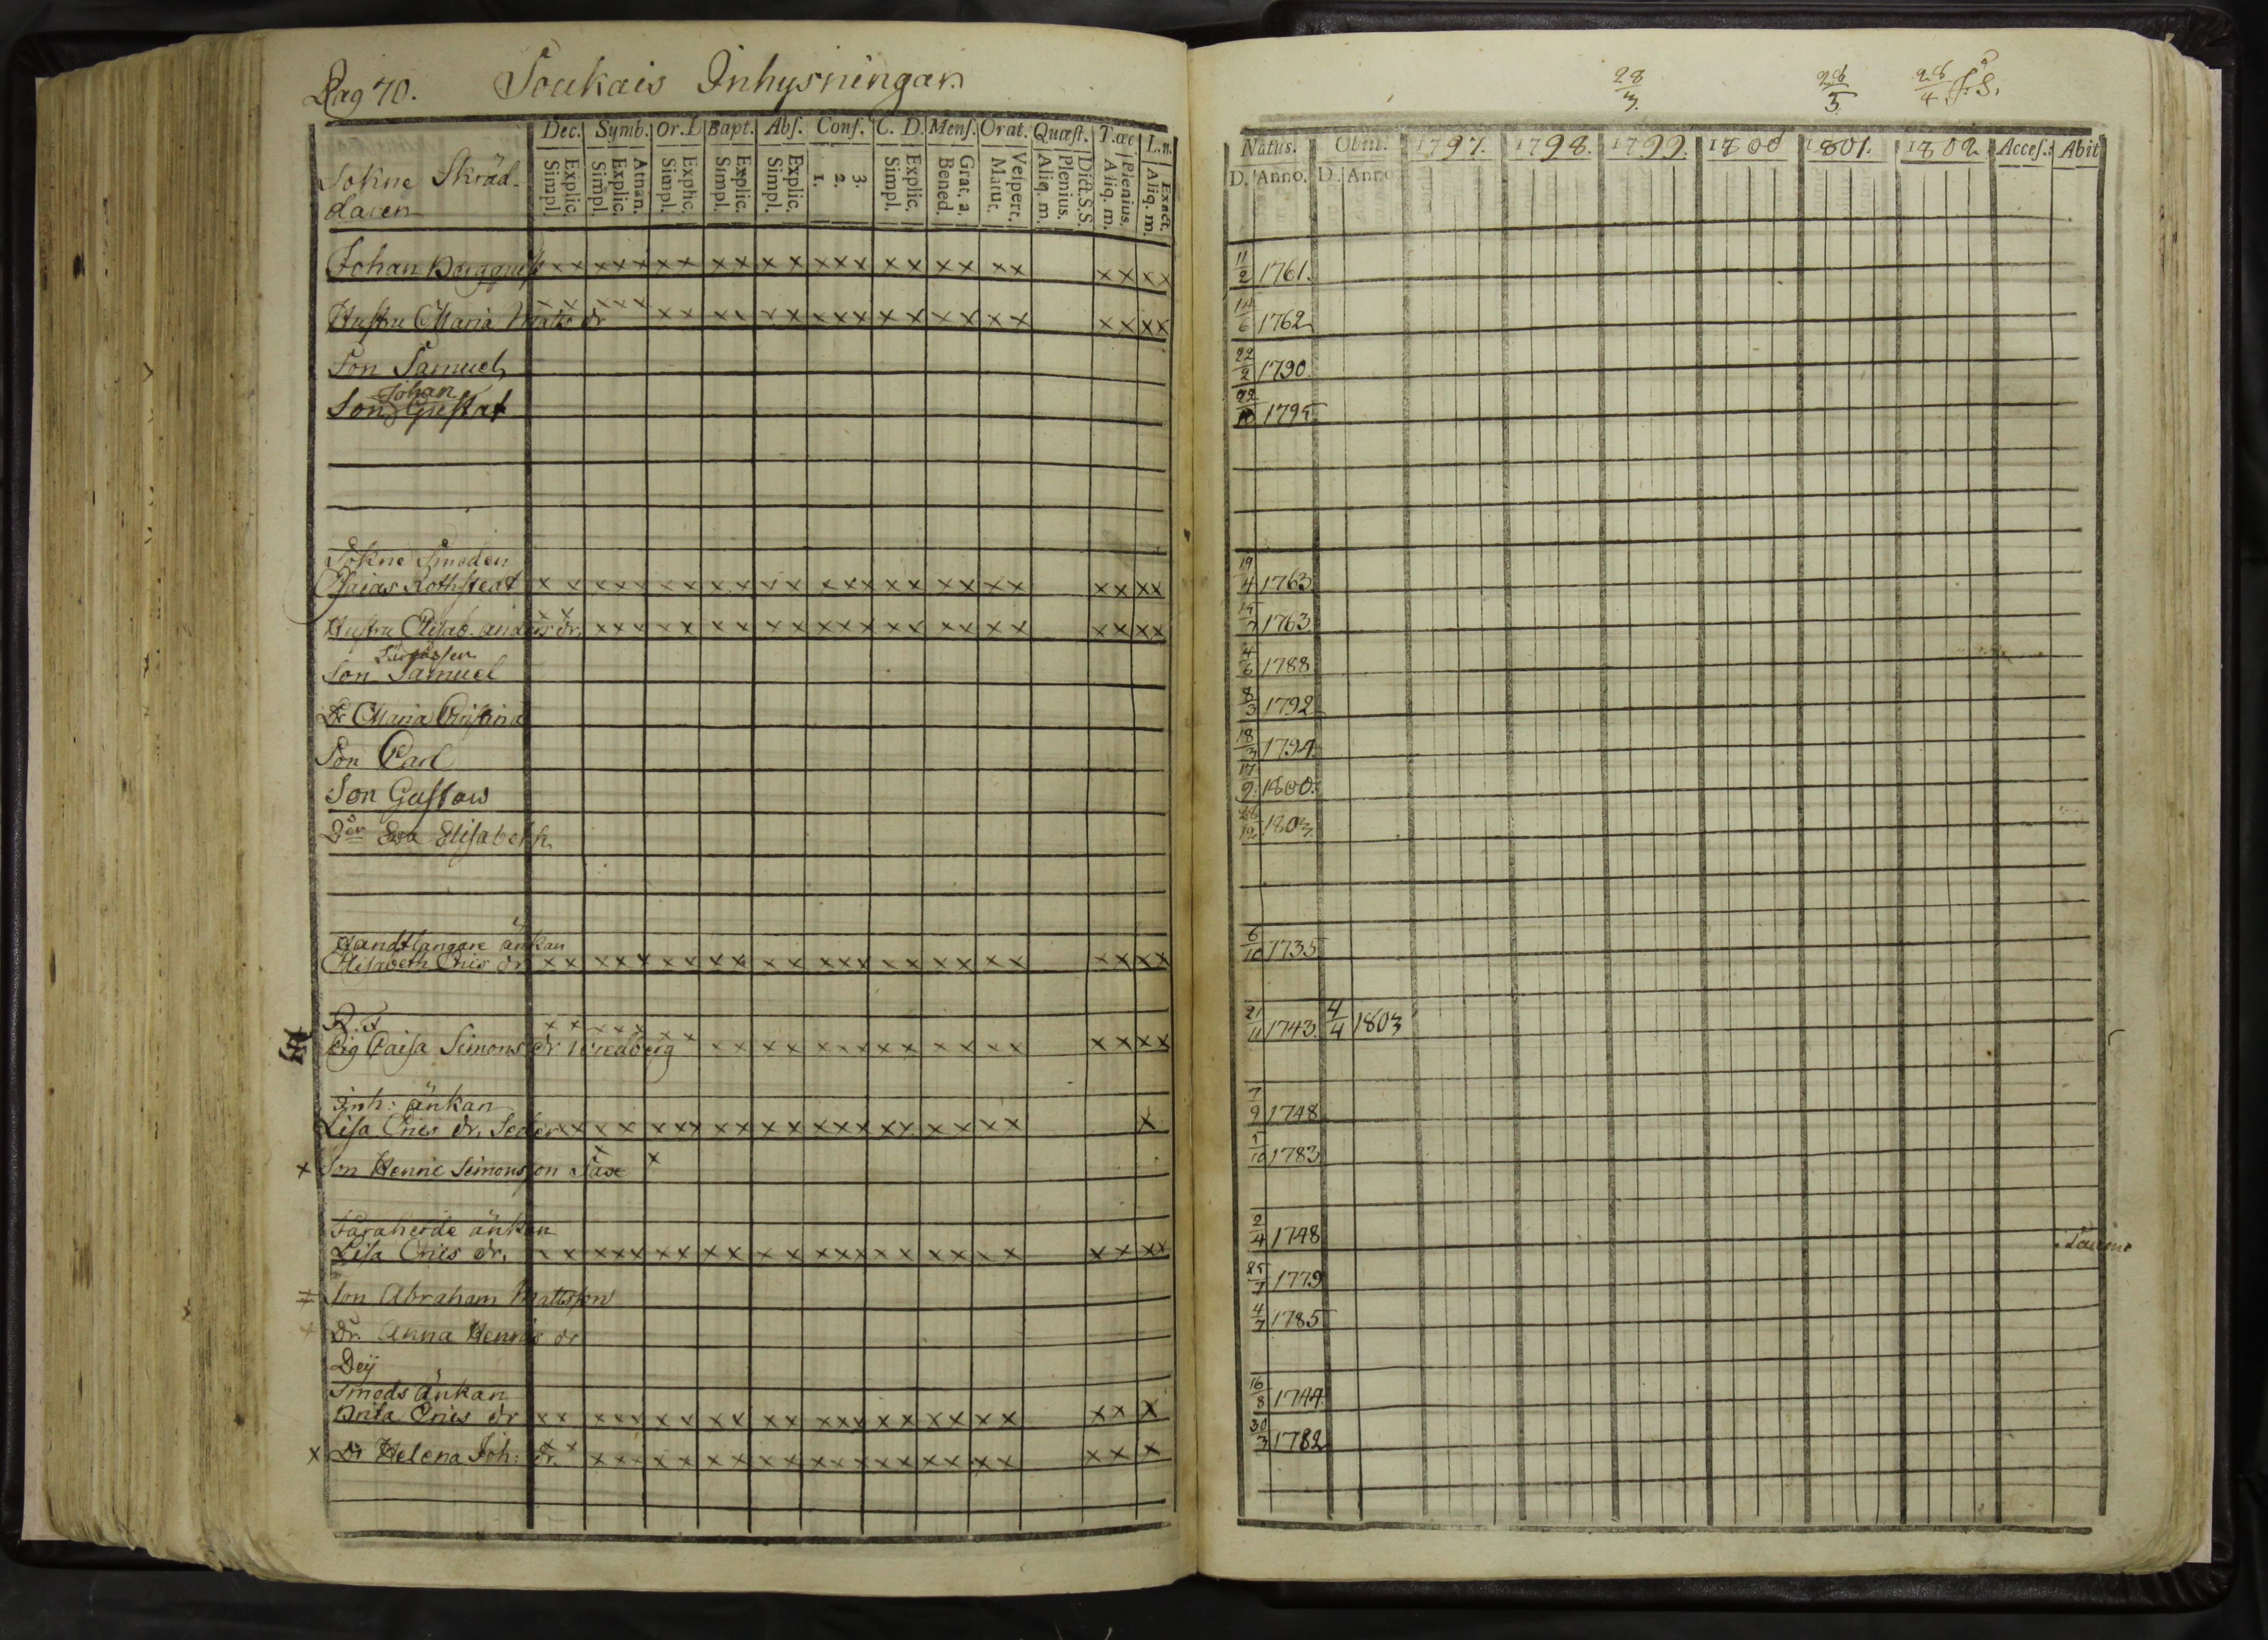 Pag 70. Soukais Inhysningar.
Dec. Symb. Or. D Bapt. Abs. Conf. C. D. Mens. Orat. Quæst. T. œc. L. n.
Simpl. Explic. Simpl. Explic. Atnan. Simpl. Explic. Simpl. Explic. Simpl. Explic. 1. 2. 3. Simpl. Explic. Bened. Grat. a. Matut. Vespert. Aliq. m. Plenius. Dict. S.S. Aliq. m. Plenius. Aliq. m. Exact.
Sokne Skräd-
daren
Johan
x x x x x x x x x x x x x x x x x x x x x x x x
Hustru Maria Matts dr
x x x x x x x x x x x x x x x x x x x x x x x x
Son Samuel
Johan
Son Gustaf
Sokne Smeden
Esaias Rothstedt x x x x x x x x x x x x x x x x x x x x x x x x
Hustru Elisab. anders dr. x x x x x x x x x x x x x x x x x x x x x x x x
Son Samuel
Dr Maria Christina
Son Carl
Son Gustaw
Dr Eva Elisabeth.
Handtlangare änkan
Elisabeth Erics dr x x x x x x x x x x x x x x x x x x x x x x x x
Pig Caisa Simons dr x x x x x x x x x x x x x x x x x x x x x x x x
inh: änkan
Lisa Erics dr. x x x x x x x x x x x x x x x x x x x x x
x Son Henric Simonsson Sax x x
Fåraherde änkan
Lisa Erics dr. x x x x x x x x x x x x x x x x x x x x x x x x
Son Abraham Mattsson
Dr. Anna Henrics dr
Dej
Smeds änkan
Anna Erics dr x x x x x x x x x x x x x x x x x x x x x x x
x Dr Helena Joh: dr. x x x x x x x x x x x x x x x x x x x x x x x
28/3 28/3 28/4 S. S.
Natus. Obiit. 1797. 1798. 1799. 1800 1801. 1802. Acces. Abit
D. Anno. D. Anno
11/2 1761.
14/6 1762
22/2 1790
22/10 1795
19/4 1763
15/7 1763
4/6 1788
8/3 1792
18/3 1794
17/9 1800.
28/12 1803.
6/10 1735
21/11 1743. 4/4 1803
7/9 1748
5/10 1783
2/4 1748
25/7 1779
4/7 1785
16/8 1744
30/3 1782